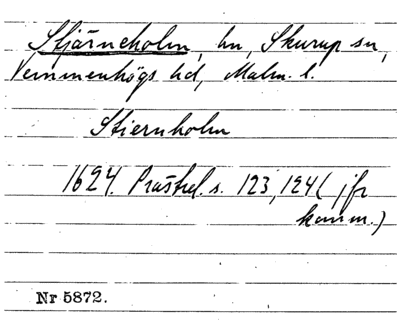 Stjärneholm, hn, Skurup sn,
Vemmenhögs hd, Malm. l.
Stiernholm
1624. Prästrel. s. 123, 124 (jfr
komm.)
Nr 5872.